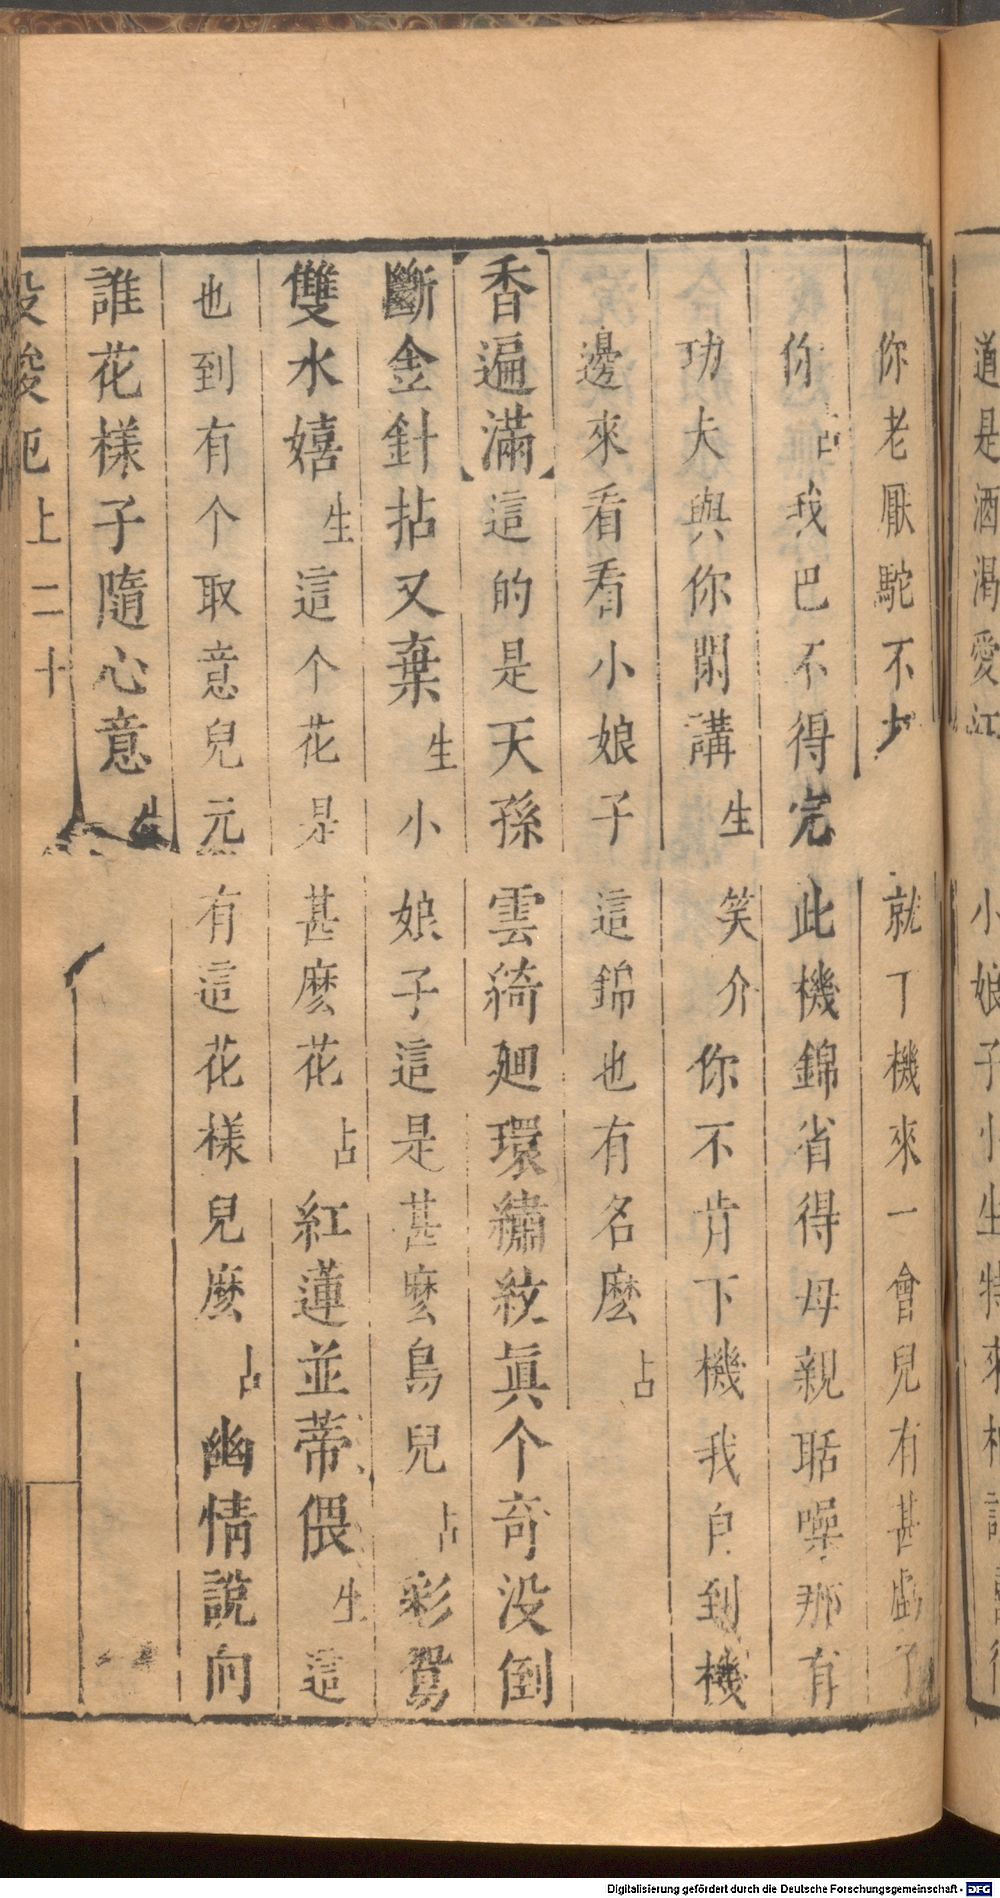 道是酒渴愛江 小娘子小生特來
你老厭駝不少 就丁機來一會兒有甚虧了
你 占 我巴不得完 此機錦省得母親聒噪那有
功夫與你閑講 生 笑介 你不肯下機我自到機
邊來看看小娘子 這錦也有名麼 占
【香遍滿】這的是天孫 雲綺廻環繡紋眞个奇没倒
斷金針拈又棄 生 小 娘子這是甚麼鳥兒 占 彩鴛
雙水嬉 生 這个花是 甚麼花 占 紅蓮並蒂偎 生 這
也到有个取意兒元 有這花樣兒麼 占 幽情說向
誰花樣子隨心意 生
上 二十
Digitalisierung gefördert durch die Deutsche Forschungsgemeinschaft - DFG